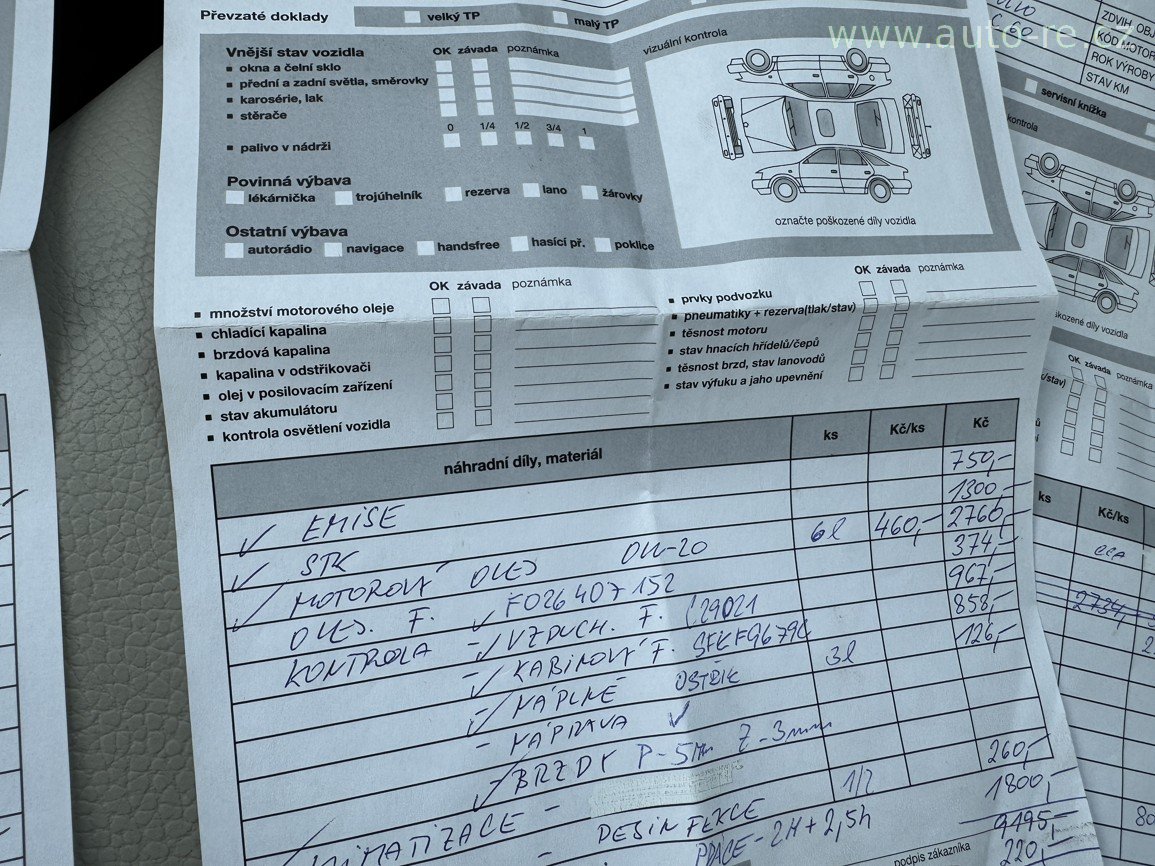 Převzaté doklady velký TP malý TP
www.auto-re.cz
Vnější stav vozidla OK závada poznámka vizuální kontrola
okna a čelní sklo
přední a zadní světla, směrovky
karosérie, lak
stěrače
0 1/4 1/2 3/4 1
palivo v nádrži
Povinná výbava
lékárnička trojúhelník rezerva lano žárovky
označte poškozené díly vozidla
Ostatní výbava
autorádio navigace handsfree hasící př. poklice
OK závada poznámka OK závada poznámka
množství motorového oleje prvky podvozku
chladící kapalina pneumatiky + rezerva(tlak/stav)
brzdová kapalina těsnost motoru
kapalina v odstřikovači stav hnacích hřídelů/čepů
olej v posilovacím zařízení těsnost brzd, stav lanovodů
stav akumulátoru stav výfuku a jaho upevnění
kontrola osvětlení vozidla
náhradní díly, materiál ks Kč/ks Kč
✓ EMISE 750,-
✓ STK 1300,-
✓ MOTOROVÝ OLEJ OW-20 6l 460,- 2760,-
OLEJ. F. ✓ F026407152 374,-
KONTROLA -✓ VZDUCH. F. C29021 967,-
-✓ KABINOVÝ F. 858,-
-✓ NÁPLNĚ OSTŘIK 3l 126,-
- NÁPRAVA ✓
-✓ BRZDY P-5mm Z-3mm
KLIMATIZACE - DESINFEKCE 1/2 260,-
PRÁCE - 2H + 2,5h 1800,-
9195,-
podpis zákazníka 220,-
ZDVIH OBJ
KÓD MOTOR
ROK VÝROBY
STAV KM
servisní knížka
kontrola
kozené díly vozidla
OK závada poznámka
k/stav)
ks Kč/ks
2734,-
80